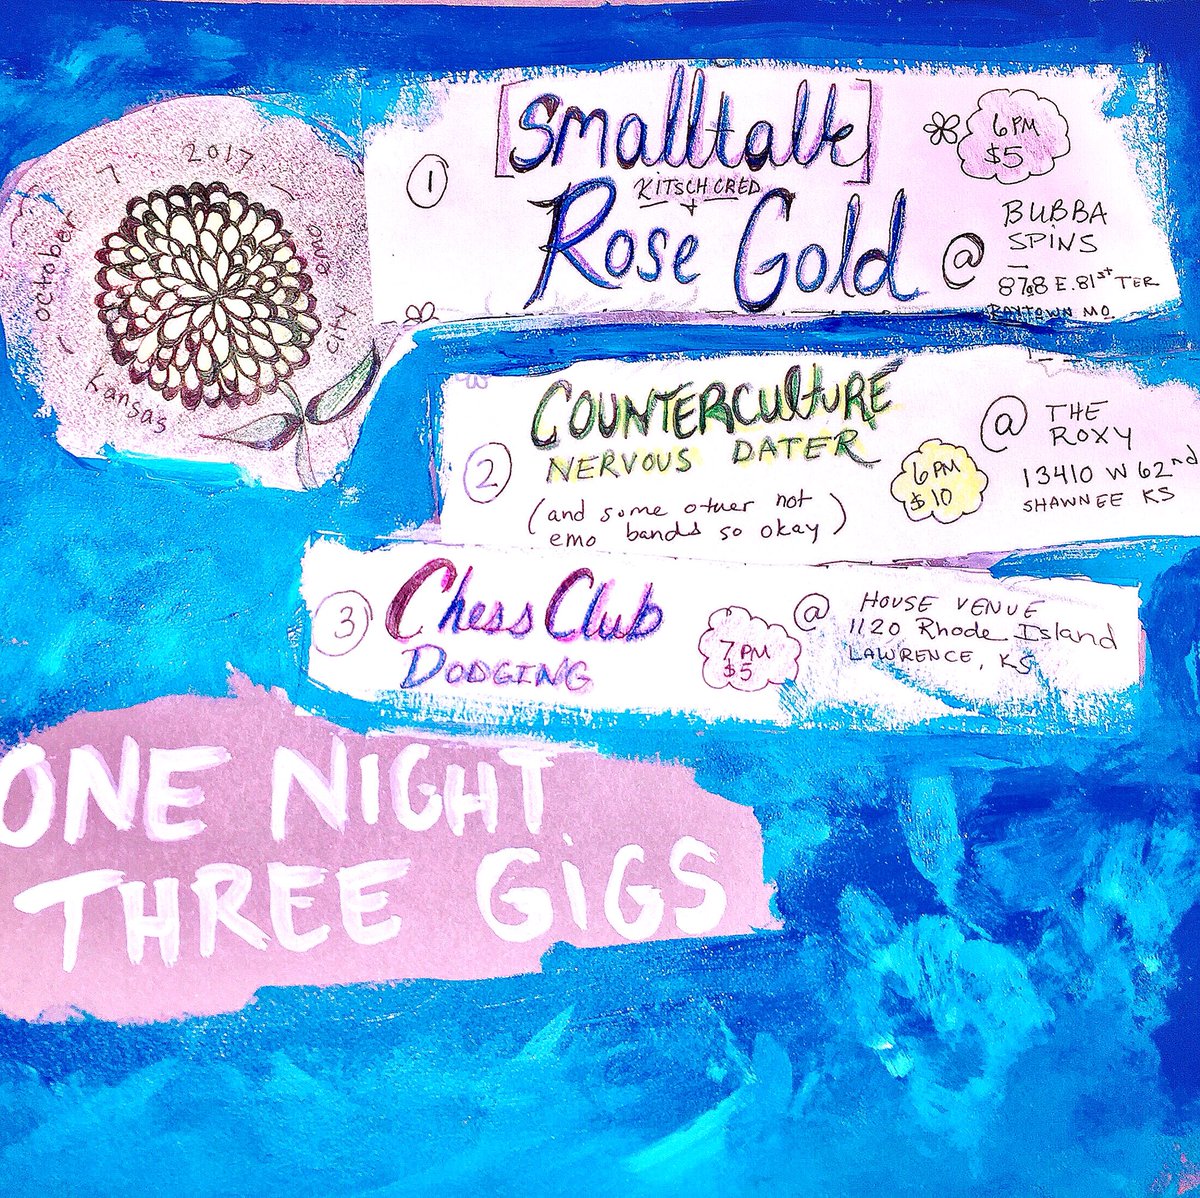 october 7 2017
Kansas city emo
1
[smalltalk]
KITSCH CRED
+
Rose Gold
6 PM
$5
@
BUBBA
SPINS
8708 E. 81st TER
RAYTOWN MO.
2
COUNTERCULTURE
NERVOUS DATER
(and some other not
emo bands so okay)
6 PM
$10
@
THE
ROXY
13410 W 62nd
SHAWNEE KS
3
Chess Club
DODGING
7 PM
$5
@
HOUSE VENUE
1120 Rhode Island
LAWRENCE, KS
ONE NIGHT
THREE GiGS